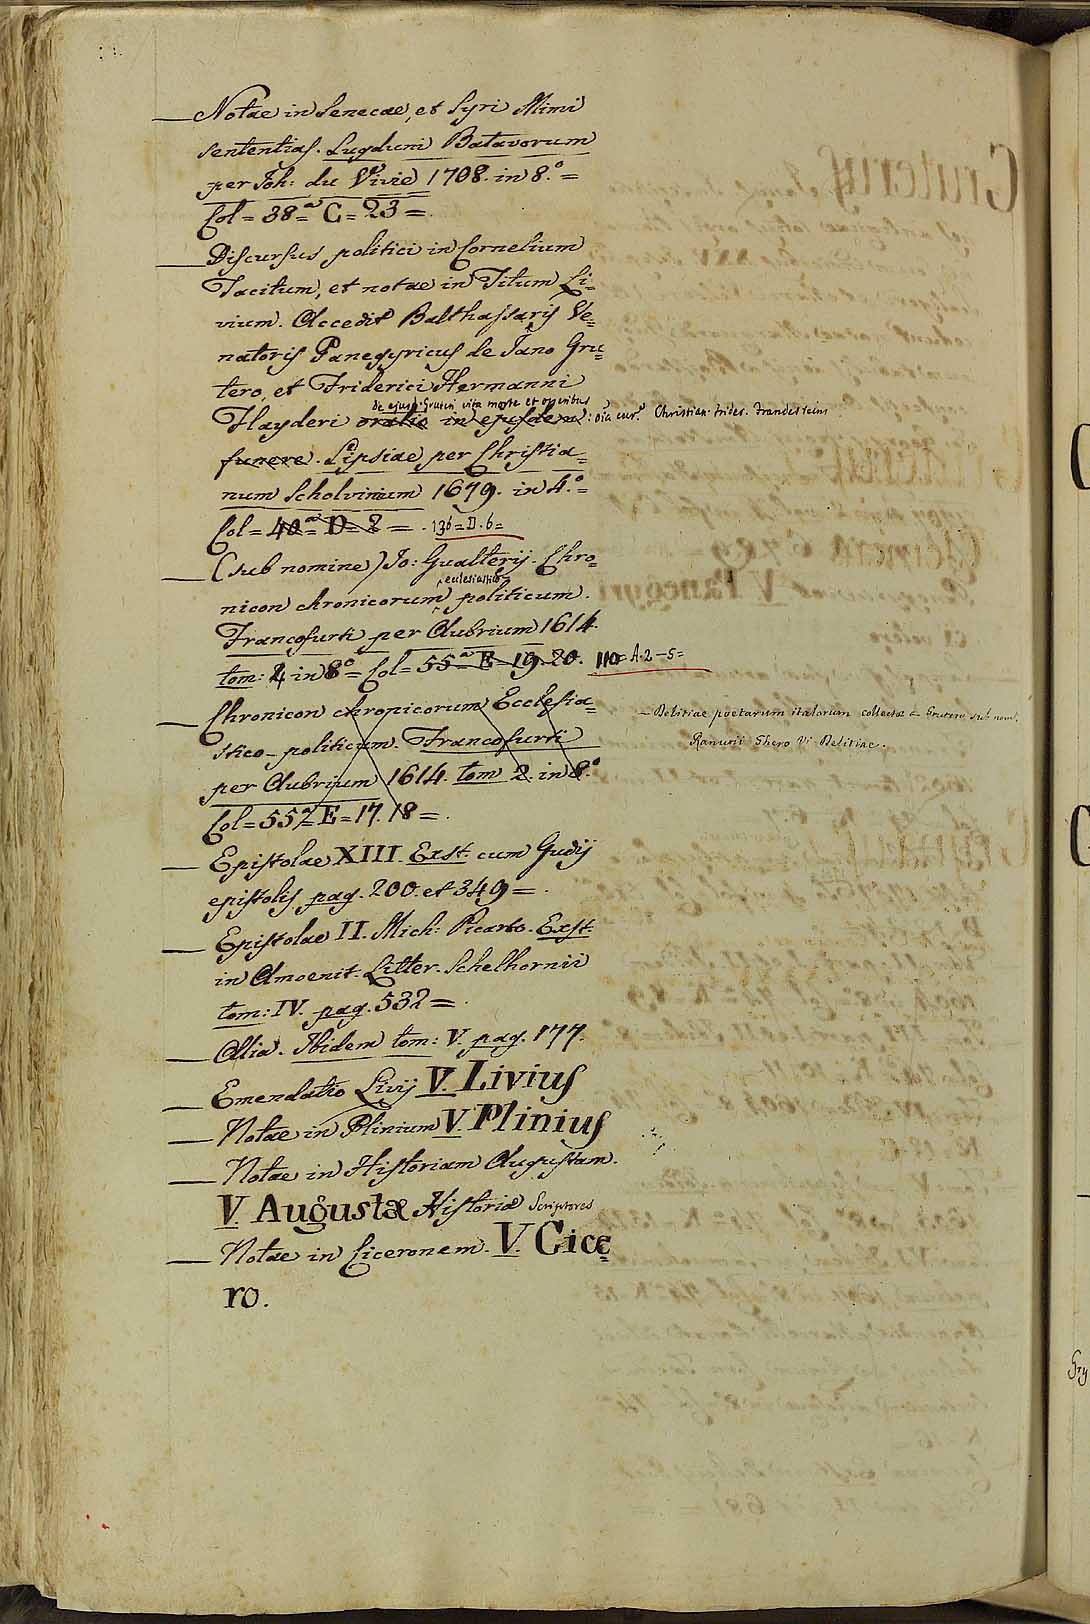 — Notae in Senecae, et Syri Mimi
sententias. Lugduni Batavorum
per Joh: du Vivie 1708. in 8.° =
Col = 38 =ª C = 23 =.
— Discursus politici in Cornelium
Tacitum, et notae in Titum Li=
vium. Accedit Balthassaris Ve=
natoris Panegyricus de Jano Gru=
tero, et Friderici Hermanni
de ejusd. Gruteri vita morte et operibus
Flayderi oratio in ejusdem : oĩa cur.ᵉ Christian. Frider. Franckestein
funere. Lipsiae per Christia=
num Scholvinium 1679. in 4.° =
Col = 40 =ª D = 2 = . 136 = D. 6 =
— (sub nomine) Jo: Gualterij. Chro=
ecclesiastico
nicon chronicorum politicum.
Francofurti per Aubrium 1614.
tom: 4 in 8° = Col = 55 =ª E = 19. 20. 110 = A. 2 - 5 =
— Chronicon chronicorum Ecclesia=
stico-politicum. Francofurti
per Aubrium 1614. tom 2. in 8.°
Col = 55 =ª E = 17. 18 = .
— Delitiae poetarum italorum collectae a Grutero sub nom.
Ranutii Ghero V. Delitiae.
— Epistolae XIII. Exst: cum Gudij
epistolis pag. 200. et 349 = .
— Epistolae II. Mich: Picarto. Exst:
in Amoenit. Litter. Schelhornii
tom: IV. pag. 532 = .
— Alia. Ibidem tom: V. pag. 177.
— Emendatio Livij V. Livius
— Notae in Plinium V. Plinius
— Notae in Historiam Augustam.
V. Augustæ Historiæ Scriptores
— Notae in Ciceronem. V. Cice=
ro.